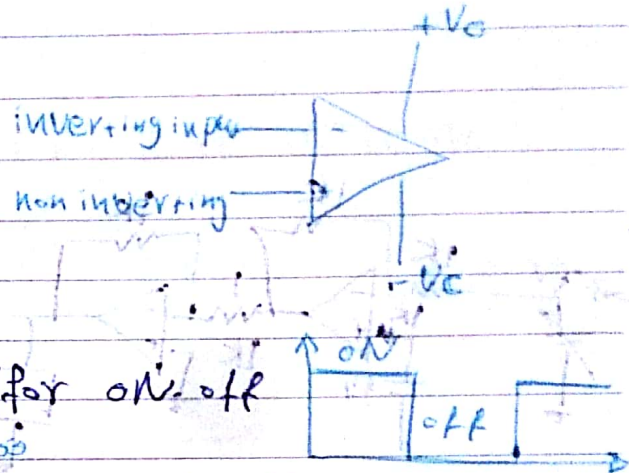 +Vc
inverting inpu
-
non inverting
-Vc
ON
for ON-off
off